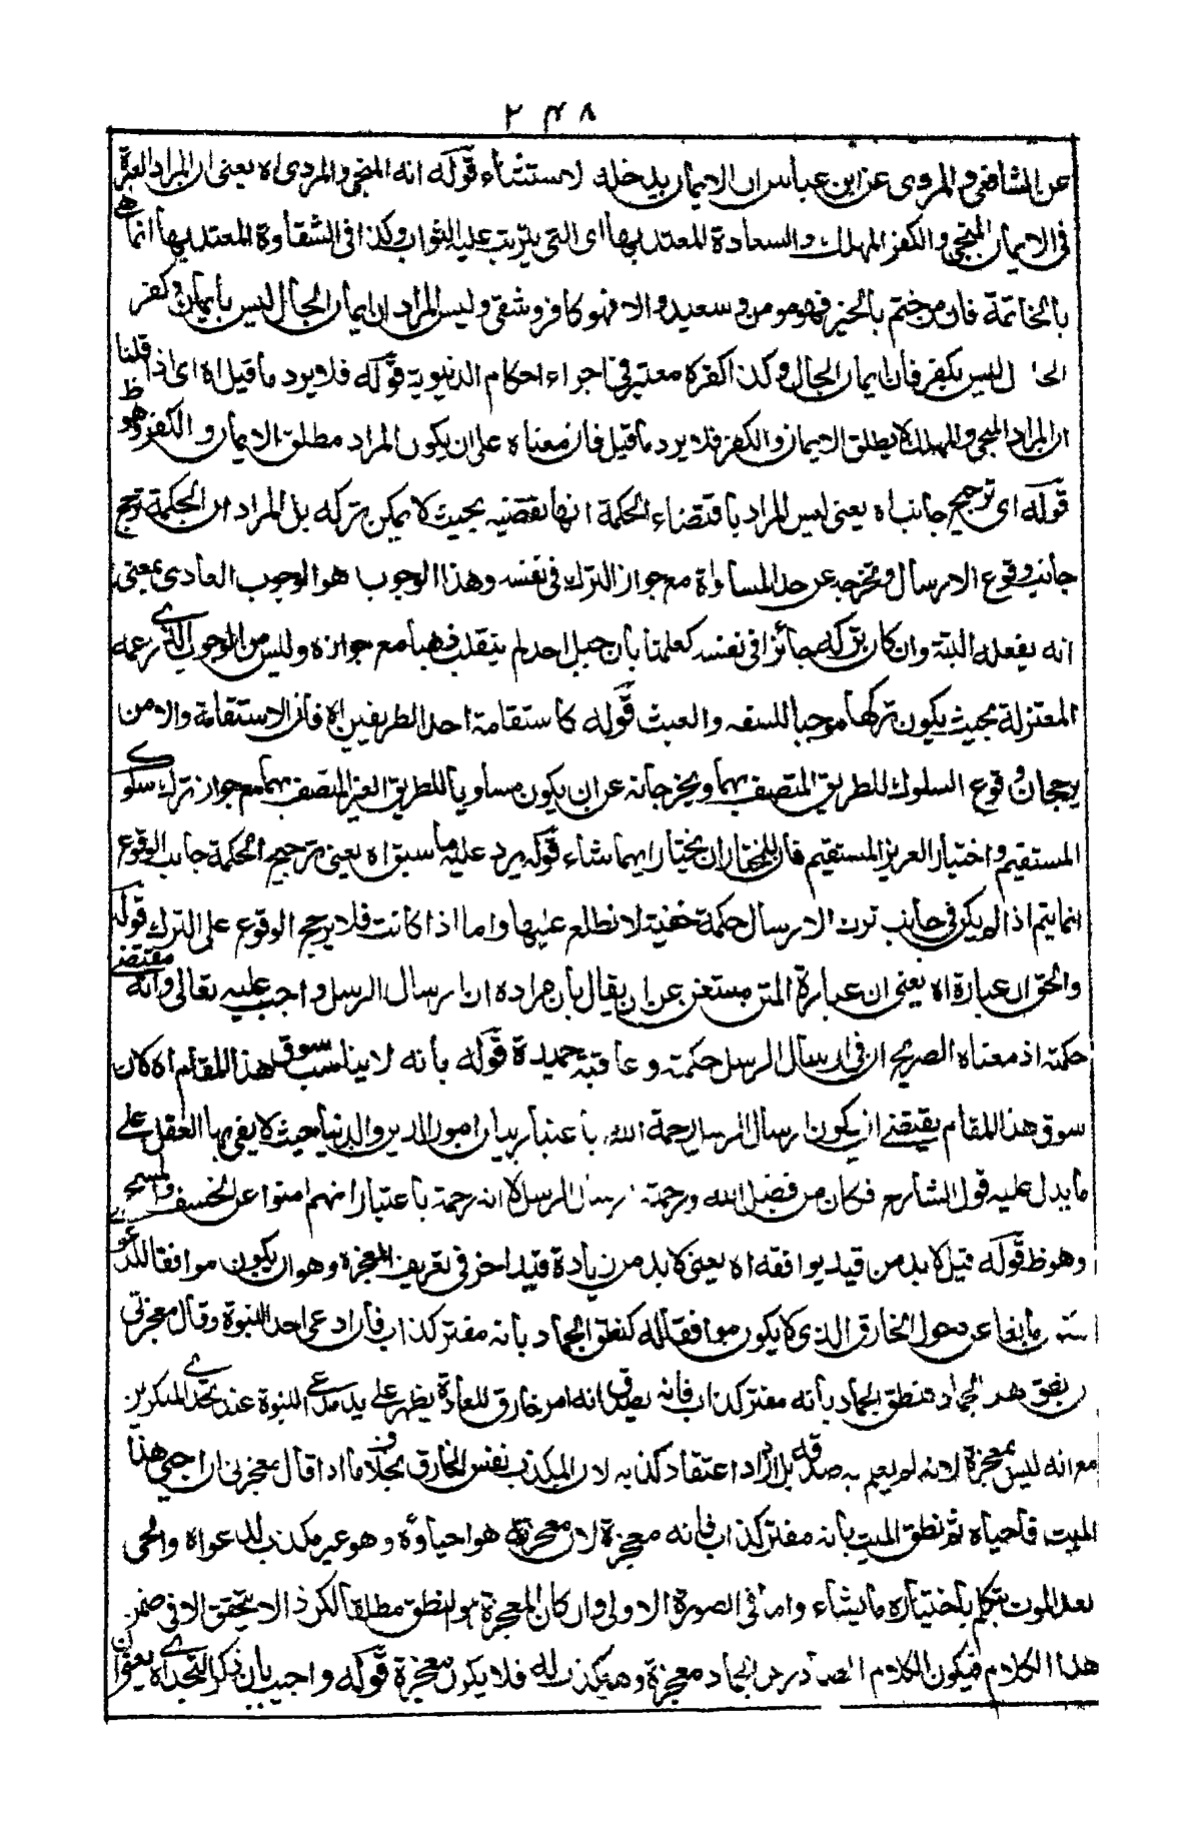 ٢٤٨
عن الشافعي والمروي عن ابن عباس ان الايمان يدخله الاستثناء قوله انه المنجي والمردي اه يعني ان المراد العبرة
في الايمان المنجي والكفر المهلك والسعادة المعتد بها اى التي يترتب عليه الثواب وكذا في الشقاوة المعتد بها انما هي
بالخاتمة فان من ختم بالخير فهو مومن وسعيد والا فهو كافر وشقي وليس المراد ان ايمان الحال ليس بايمان وكفر
الحال ليس بكفر فان ايمان الحال وكذا كفره معتبر في اجراء احكام الدنيوية قوله فلا يرد ما قيل اه اى اذا قلنا
ان المراد المنجي والمهلك لا مطلق الايمان والكفر فلا يرد ما قيل فان معناه على ان يكون المراد مطلق الايمان والكفر وهو ظ
قوله اى ترجيح جانب اه يعني ليس المراد باقتضاء الحكمة انها تقتضيه بحيث لا يمكن تركه بل المراد ان الحكمة ترجح
جانب وقوع الارسال وتخرجه عن حد المساواة مع جواز الترك في نفسه وهذا الوجوب هو الوجوب العادى بمعنى
انه يفعله البتة وان كان تركه جائزا في نفسه كعلمنا بان جبل احد لم ينقلب ذهبا مع جوازه وليس من الوجوب الذي زعمه
المعتزلة بحيث يكون تركها موجبا للسفه والعبث قوله كاستقامة احد الطريقين اه فان الاستقامة والامن
يرجحان وقوع السلوك للطريق المتصف بهما ويخرجانه عن ان يكون مساويا للطريق الغير المتصف بهما مع جواز ترك سلوك
المستقيم واختيار الغير المستقيم فان للمختار ان يختار ايهما شاء قوله يرد عليه ما سبق اه يعني ترجيح الحكمة جانب الوقوع
انما يتم اذا لم يكن في جانب ترك الارسال حكمة خفية لا نطلع عليها واما اذا كانت فلا يرجح الوقوع على الترك قوله
والحق ان عبارة اه يعني ان عبارة المتن مستغن عن ان يقال بان مراده ان ارسال الرسل واجب عليه تعالى وانه مقتضى
حكمته اذ معناه الصريح ان في ارسال الرسل حكمة وعاقبة حميدة قوله بانه لا يناسب سوق هذا المقام اه كان
سوق هذا المقام يقتضي ان يكون ارسال الرسل رحمة الله باعتبار بيان امور الدين والدنيا بحيث لا يفي بها العقل على
ما يدل عليه قول الشارح فكان من فضل الله ورحمته ارسال الرسل لا انه رحمة باعتبار انهم امنوا عن الخسف والمسخ
وهو ظ قوله قيل لا بد من قيد يوافقه اه يعني لا بد من زيادة قيد اخر في تعريف المعجزة وهو ان يكون موافقا للدعوى
مانعا عن دخول الخارق الذى لا يكون موافقا له كنطق الجماد بانه مفتر كذاب فان ادعى احد النبوة وقال معجزتي
نطق هذا الجماد فنطق الجماد بانه مفتر كذاب فانه يصدق انه امر خارق للعادة يظهر على يد مدعي النبوة عند تحدي المنكرين
مع انه ليس بمعجزة لانه لم يعلم به صدقه بل ازداد اعتقاد كذبه لان المكذب نفس الخارق بخلاف ما اذا قال معجزتي ان احيي هذا
الميت فاحياه ثم نطق الميت بانه مفتر كذاب فانه معجزة لان معجزته هو احياؤه وهو غير مكذب لدعواه والحي
بعد الموت يتكلم باختياره ما يشاء واما في الصورة الاولى وان كان المعجزة هو النطق مطلقا لكن ذا لا يتحقق الا في ضمن
هذا الكلام فيكون الكلام الصادر من الجماد معجزة وهو مكذب له فلا يكون معجزة قوله واجيب بان ذكر التحدي اه يعني ان